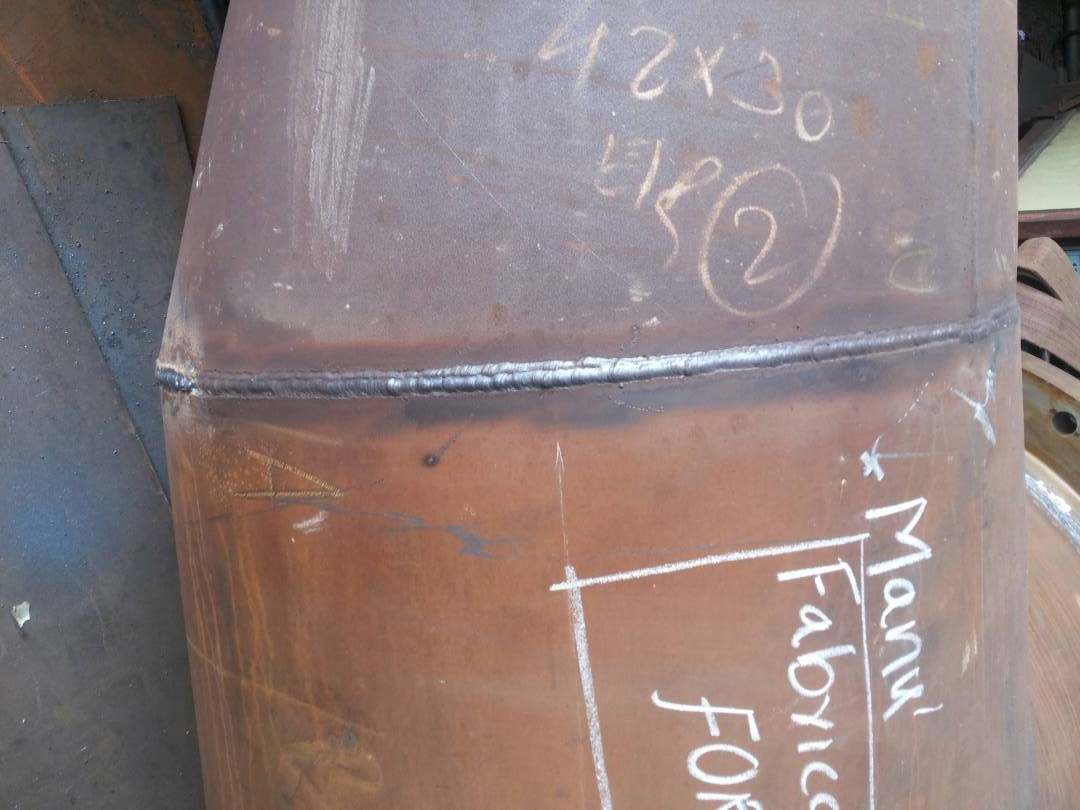 42x30
2
Manu
Fabrica
FOR